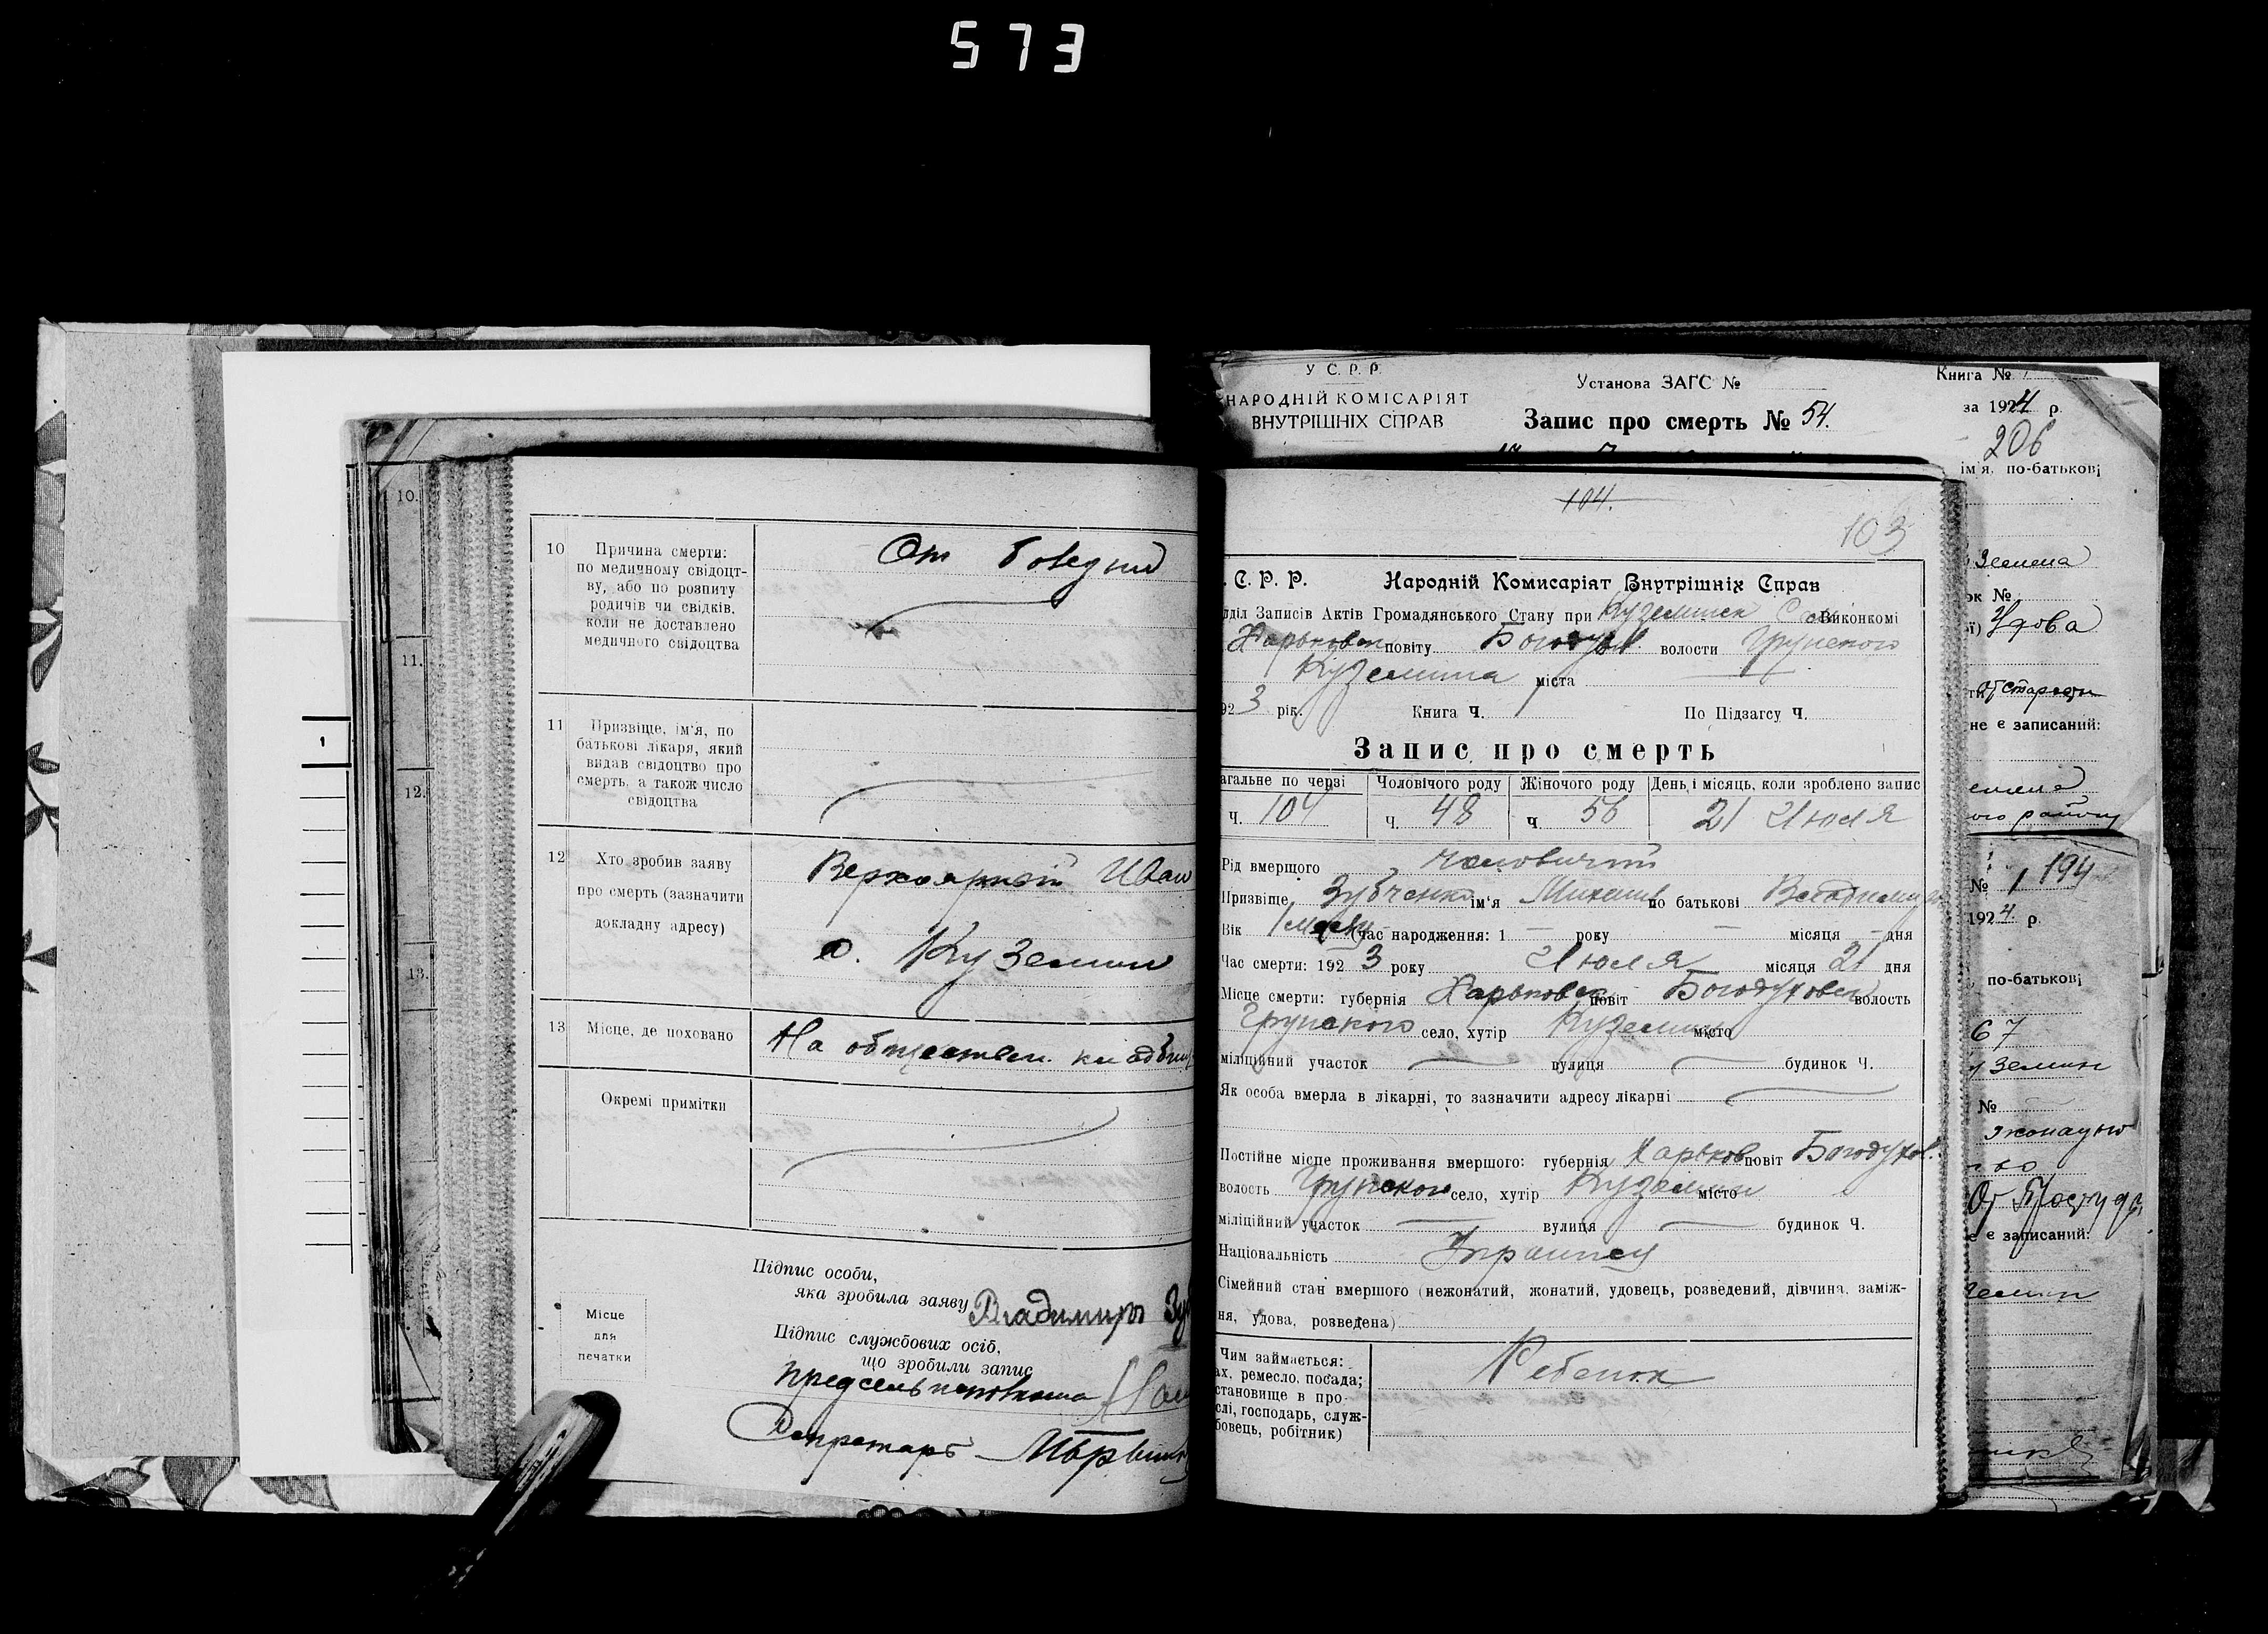 573
10.
11.
12.
13.
10 Причина смерти:
по медичному свідоцт-
ву, або по розпиту
родичів чи свідків,
коли не доставлено
медичного свідоцтва
От
11 Призвіще, ім'я, по
батькові лікаря, який
видав свідоцтво про
смерть, а також число
свідоцтва
12 Хто зробив заяву
про смерть (зазначити
докладну адресу)
Иван
с. Куземин
13 Місце, де поховано
На обществен. кладбищ
Окремі примітки
Підпис особи,
яка зробила заяву Владимиръ Зу
Підпис службових осіб,
що зробили запис
Секретарь
Місце
для
печатки
У С. Р. Р.
НАРОДНІЙ КОМІСАРІЯТ
ВНУТРІШНІХ СПРАВ
Установа ЗАГС №
Запис про смерть № 54.
Книга №
за 1924 р.
206
ім'я, по-батькові
104.
103
. С. Р. Р. Народній Комисаріят Внутрішніх Справ
діл Записів Актів Громадянського Стану при Куземинск С виконкомі
Харьковск повіту Богодух. волости Грунского
Куземина міста
923 рік Книга Ч. 1 По Підзагсу Ч.
Запис про смерть
агальне по черзі Чоловічого роду Жіночого роду День і місяць, коли зроблено запис
Ч. 104 Ч. 48 Ч. 56 21 Июля
Рід вмершого чоловичий
Призвіще Зубченко ім'я Михаил по батькові Владимир
Вік 1 месяц Час народження: 1 — року — місяця — дня
Час смерти: 1923 року Июля місяця 21 дня
Місце смерти: губернія Харьковск повіт Богодуховск волость
Грунского село, хутір Куземин місто
міліційний участок вулиця будинок Ч.
Як особа вмерла в лікарні, то зазначити адресу лікарні
Постійне місце проживання вмершого: губернія Харьков повіт Богодухов.
волость Грунского село, хутір Куземин місто
міліційний участок вулиця будинок Ч.
Національність Украинец
Сімейний стан вмершого (нежонатий, жонатий, удовець, розведений, дівчина, заміж-
ня, удова, розведена)
Чим займається:
ах, ремесло, посада;
становище в про-
слі, господарь, служ-
бовець, робітник)
Ребенок
ок №
Удова
не є записаний:
ого району
№ 1 194
1924 р.
по-батькові
67
№
От Простуды
є записаний: